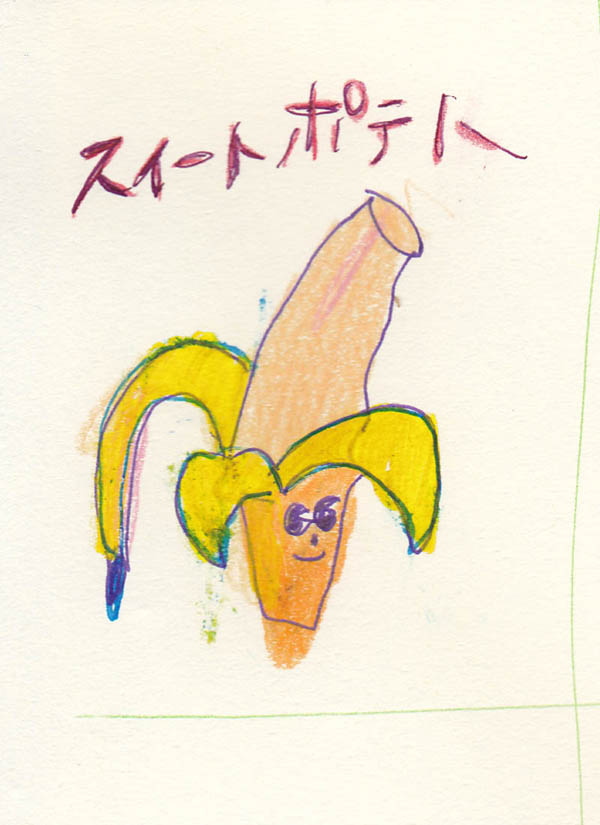 スイートポテト